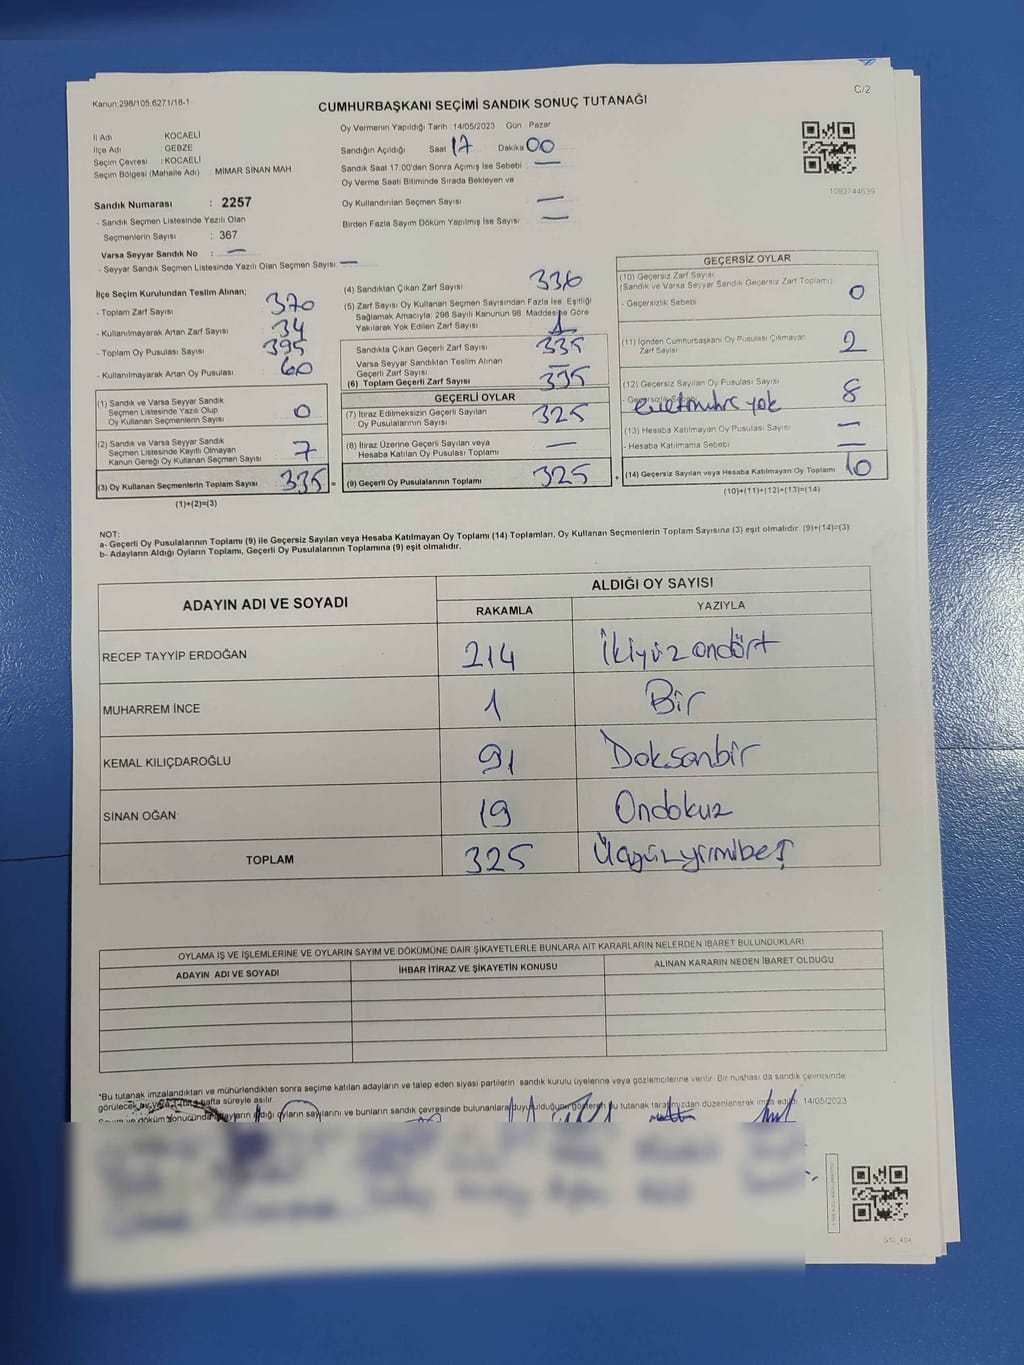 Kanun:298/105,6271/18-1
C/2
CUMHURBAŞKANI SEÇİMİ SANDIK SONUÇ TUTANAĞI
İl Adı : KOCAELİ
İlçe Adı : GEBZE
Seçim Çevresi : KOCAELİ
Seçim Bölgesi (Mahalle Adı) : MİMAR SİNAN MAH.
Sandık Numarası : 2257
- Sandık Seçmen Listesinde Yazılı Olan
Seçmenlerin Sayısı : 367
Varsa Seyyar Sandık No : —
- Seyyar Sandık Seçmen Listesinde Yazılı Olan Seçmen Sayısı: —
Oy Vermenin Yapıldığı Tarih :14/05/2023 Gün Pazar
Sandığın Açıldığı Saat 17 Dakika 00
Sandık Saat 17:00'den Sonra Açımış İse Sebebi : —
Oy Verme Saati Bitiminde Sırada Bekleyen ve
Oy Kullandırılan Seçmen Sayısı : —
Birden Fazla Sayım Döküm Yapılmış İse Sayısı : —
1093744639
İlçe Seçim Kurulundan Teslim Alınan;
- Toplam Zarf Sayısı : 370
- Kullanılmayarak Artan Zarf Sayısı : 34
- Toplam Oy Pusulası Sayısı : 395
- Kullanılmayarak Artan Oy Pusulası : 60
(1) Sandık ve Varsa Seyyar Sandık
Seçmen Listesinde Yazılı Olup
Oy Kullanan Seçmenlerin Sayısı : 0
(2) Sandık ve Varsa Seyyar Sandık
Seçmen Listesinde Kayıtlı Olmayan
Kanun Gereği Oy Kullanan Seçmen Sayısı : 7
(3) Oy Kullanan Seçmenlerin Toplam Sayısı : 335 =
(1)+(2)=(3)
(4) Sandıktan Çıkan Zarf Sayısı : 336
(5) Zarf Sayısı Oy Kullanan Seçmen Sayısından Fazla İse, Eşitliği
Sağlamak Amacıyla; 298 Sayılı Kanunun 98. Maddesine Göre
Yakılarak Yok Edilen Zarf Sayısı : 1
Sandıkta Çıkan Geçerli Zarf Sayısı : 335
Varsa Seyyar Sandıktan Teslim Alınan
Geçerli Zarf Sayısı : —
(6) Toplam Geçerli Zarf Sayısı : 335
GEÇERLİ OYLAR
(7) İtiraz Edilmeksizin Geçerli Sayılan
Oy Pusulalarının Sayısı : 325
(8) İtiraz Üzerine Geçerli Sayılan veya
Hesaba Katılan Oy Pusulası Toplamı : —
(9) Geçerli Oy Pusulalarının Toplamı : 325 +
GEÇERSİZ OYLAR
(10) Geçersiz Zarf Sayısı
(Sandık ve Varsa Seyyar Sandık Geçersiz Zarf Toplamı) : 0
- Geçersizlik Sebebi :
(11) İçinden Cumhurbaşkanı Oy Pusulası Çıkmayan
Zarf Sayısı : 2
(12) Geçersiz Sayılan Oy Pusulası Sayısı : 8
- Geçersizlik Sebebi : yok
(13) Hesaba Katılmayan Oy Pusulası Sayısı : —
- Hesaba Katılmama Sebebi : —
(14) Geçersiz Sayılan veya Hesaba Katılmayan Oy Toplamı : 10
(10)+(11)+(12)+(13)=(14)
NOT:
a- Geçerli Oy Pusulalarının Toplamı (9) ile Geçersiz Sayılan veya Hesaba Katılmayan Oy Toplamı (14) Toplamları, Oy Kullanan Seçmenlerin Toplam Sayısına (3) eşit olmalıdır. (9)+(14)=(3)
b- Adayların Aldığı Oyların Toplamı, Geçerli Oy Pusulalarının Toplamına (9) eşit olmalıdır.
ADAYIN ADI VE SOYADI
ALDIĞI OY SAYISI
RAKAMLA YAZIYLA
RECEP TAYYİP ERDOĞAN 214 İkiyüzondört
MUHARREM İNCE 1 Bir
KEMAL KILIÇDAROĞLU 91 Doksanbir
SİNAN OĞAN 19 Ondokuz
TOPLAM 325 Üçyüzyirmibeş
OYLAMA İŞ VE İŞLEMLERİNE VE OYLARIN SAYIM VE DÖKÜMÜNE DAİR ŞİKAYETLERLE BUNLARA AİT KARARLARIN NELERDEN İBARET BULUNDUKLARI
ADAYIN ADI VE SOYADI İHBAR İTİRAZ VE ŞİKAYETİN KONUSU ALINAN KARARIN NEDEN İBARET OLDUĞU
*Bu tutanak imzalandıktan ve mühürlendikten sonra seçime katılan adayların ve talep eden siyasi partilerin sandık kurulu üyelerine veya gözlemcilerine verilir. Bir nushası da sandık çevresinde
görülecek bir yere 1 hafta süreyle asılır.
Sayım ve döküm sonucunda adayların aldığı oyların sayılarını ve bunların sandık çevresinde bulunanlara duyurulduğunu gösteren bu tutanak tarafımızdan düzenlenerek imza edildi. 14/05/2023